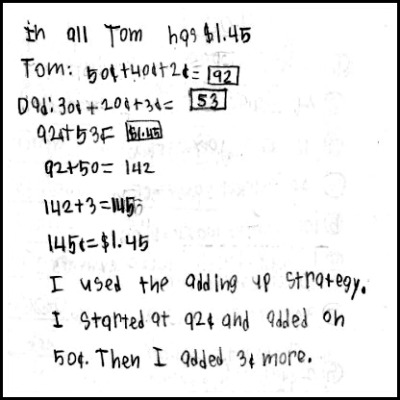 in all Tom has $1.45
Tom: 50¢+40¢+2¢= 92
Dad: 30¢+20¢+3¢= 53
92¢+53¢= $1.45
92+50= 142
142+3=145
145¢=$1.45
I used the adding up strategy.
I started at 92¢ and added on
50¢. Then I added 3¢ more.